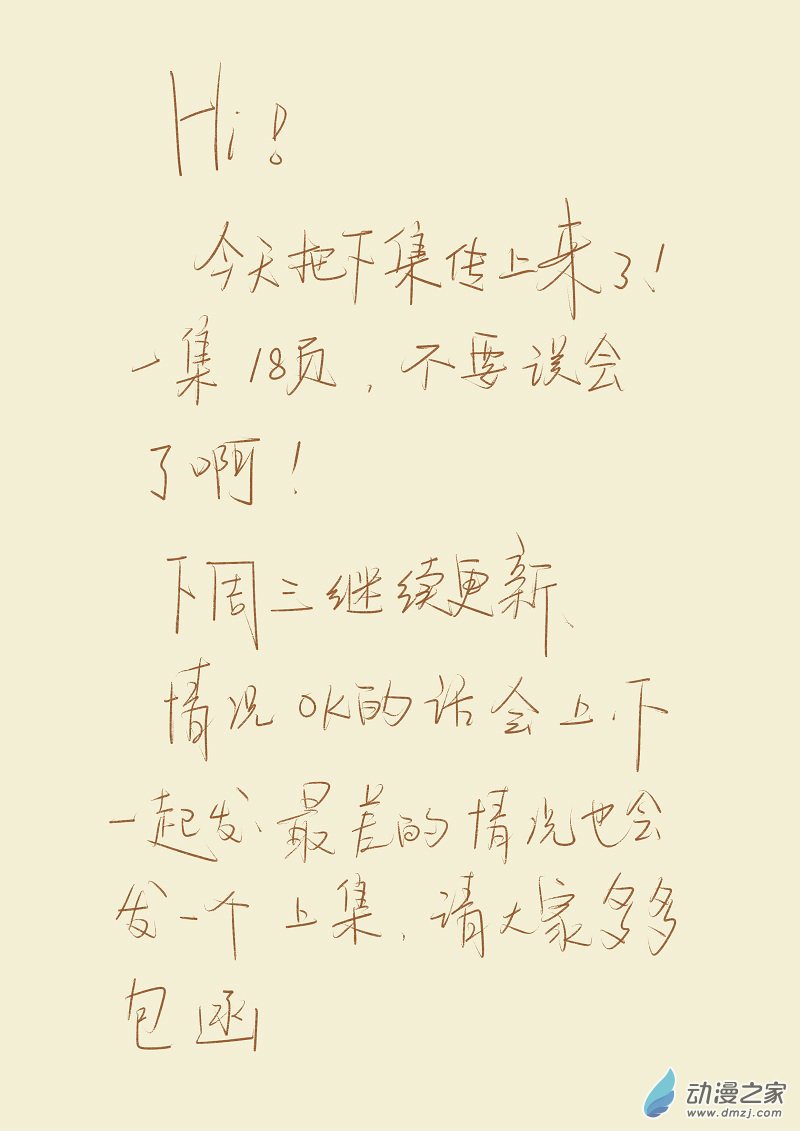 Hi!
今天把下集传上来了!
一集18页,不要误会
了啊!
下周三继续更新、
情况OK的话会上、下
一起发、最差的情况也会
发一个上集,请大家多多
包涵
动漫之家
www.dmzj.com